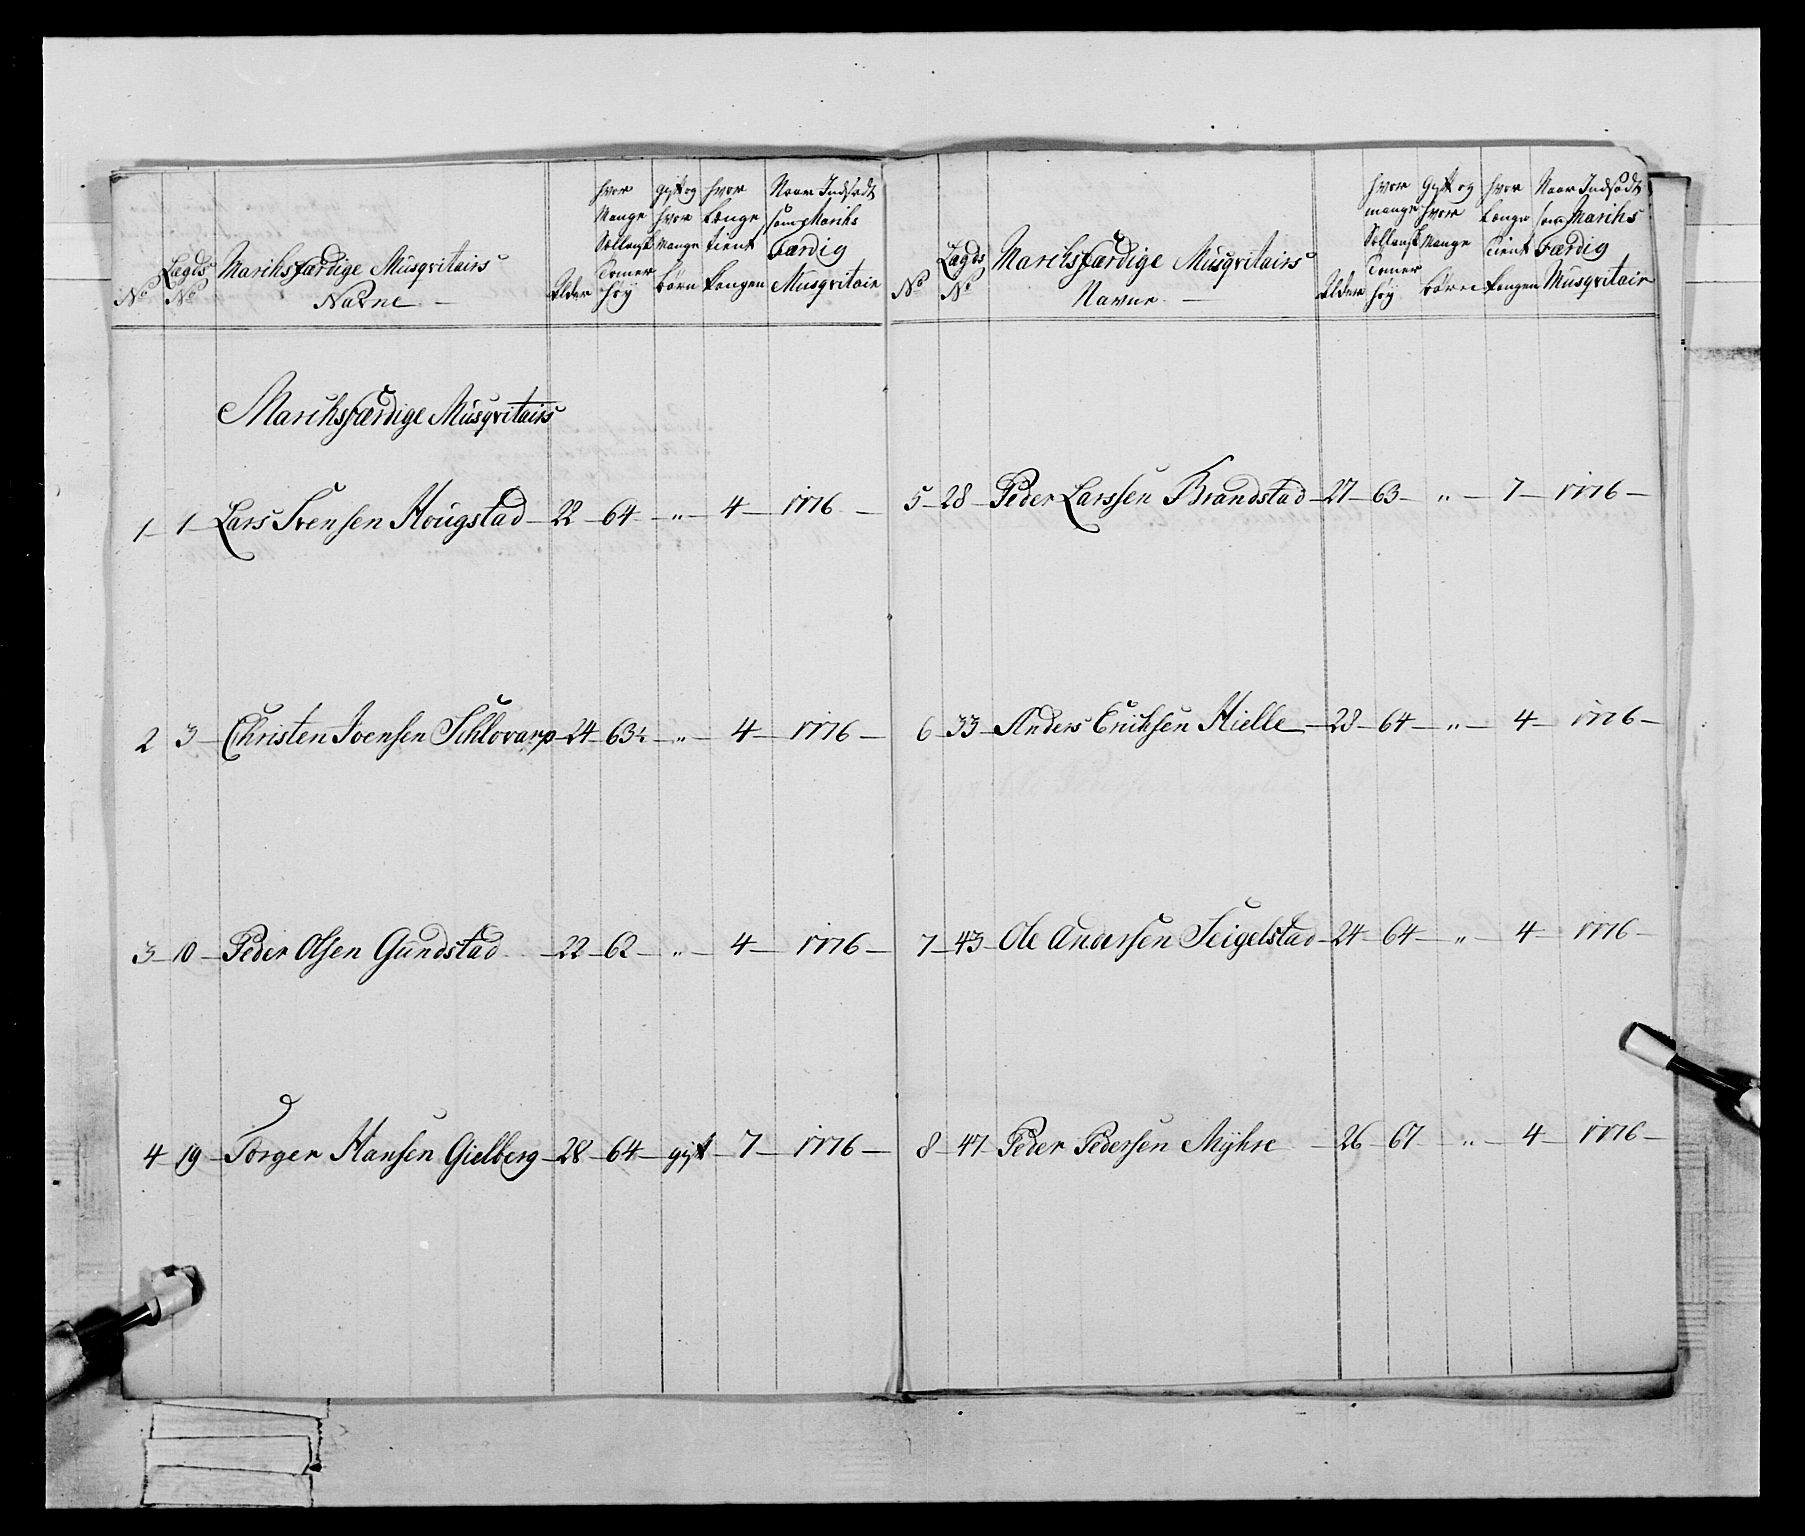 No
Lægds No
Marchsfærdige Musqvitairs Navne
Alder
hvor Mange Sællansk Tomer høy
gyft og hvor Mange børn
hvor Længe tient kongen
Naar Indsadt som Marchs Færdig Musqvitair
Marchsfærdige Musqvitairs
1 – 1 – Lars Svensen Hougstad – 22 – 64 – „ – 4 – 1776 –
2 – 3 – Christen Ivensen Schlovarp – 24 – 63½ – „ – 4 – 1776 –
3 – 10 – Peder Olsen Gundstad – 22 – 62 – „ – 4 – 1776 –
4 – 19 – Torger Hansen Gielberg – 28 – 64 – gyft – 7 – 1776 –
No
Lægds No
Marchsfærdige Musqvitairs Navne
Alder
hvor mange Sællansk Tomer høy
Gyft og hvor Mange børn
hvor Længe Tient kongen
Naar Indsadt som Marchs Færdig Musqvitair
5 – 28 – Peder Larssen Brandstad – 27 – 63 – „ – 7 – 1776 –
6 – 33 – Anders Erichsen Hielle – 28 – 64 – „ – 4 – 1776 –
7 – 43 – Ole Andersen Seigelstad – 24 – 64 – „ – 4 – 1776 –
8 – 47 – Peder Pedersen Myhre – 26 – 67 – „ – 4 – 1776 –